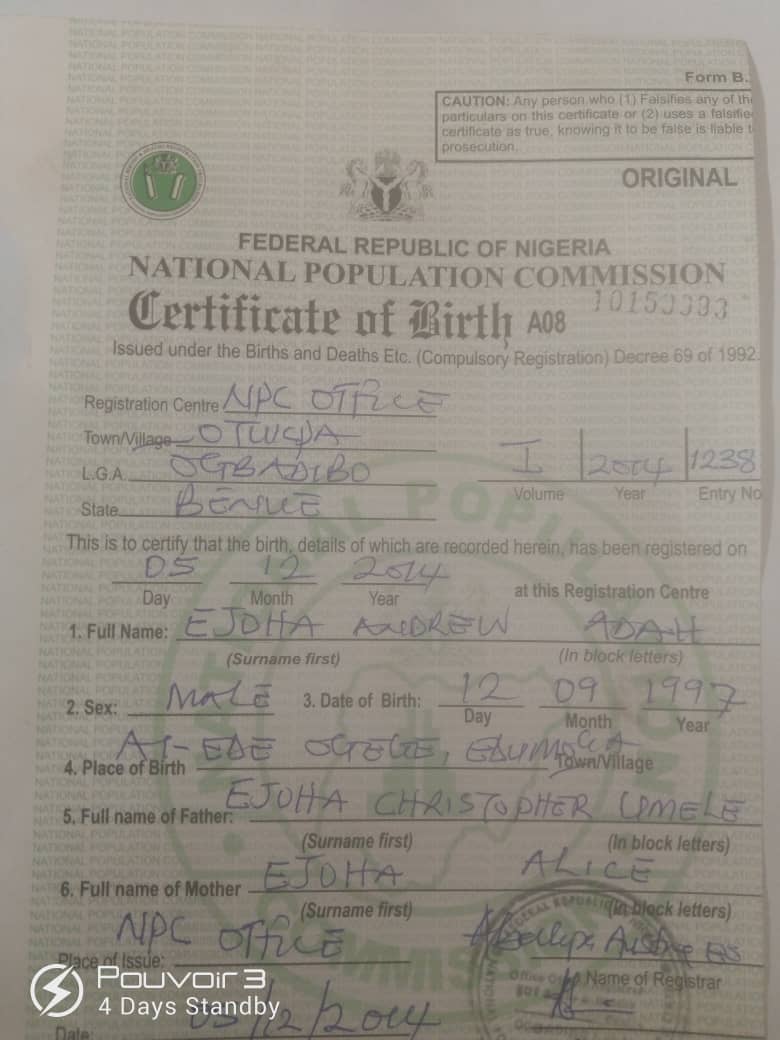 Form B.
CAUTION: Any person who (1) Falsifies any of the
particulars on this certificate or (2) uses a falsifie
certificate as true, knowing it to be false is liable t
prosecution.
ORIGINAL
FEDERAL REPUBLIC OF NIGERIA
NATIONAL POPULATION COMMISSION
Certificate of Birth A08
Issued under the Births and Deaths Etc. (Compulsory Registration) Decree 69 of 1992.
Registration Centre NPC OFFICE
Town/Village OTUKPA
L.G.A. OGBADIBO I 2014 1238
Volume Year Entry No
State BENUE
This is to certify that the birth, details of which are recorded herein, has been registered on
05 12 2014
Day Month Year at this Registration Centre
1. Full Name: EJOHA ANDREW ADAH
(Surname first) (In block letters)
2. Sex: MALE 3. Date of Birth: 12 09 1997
Day Month Year
4. Place of Birth Town/Village
5. Full name of Father: EJOHA CHRISTOPHER
(Surname first) (In block letters)
6. Full name of Mother EJOHA ALICE
(Surname first) (In block letters)
NPC OFFICE
Place of Issue: Name of Registrar
Date: 05/12/2014
Pouvoir 3
4 Days Standby